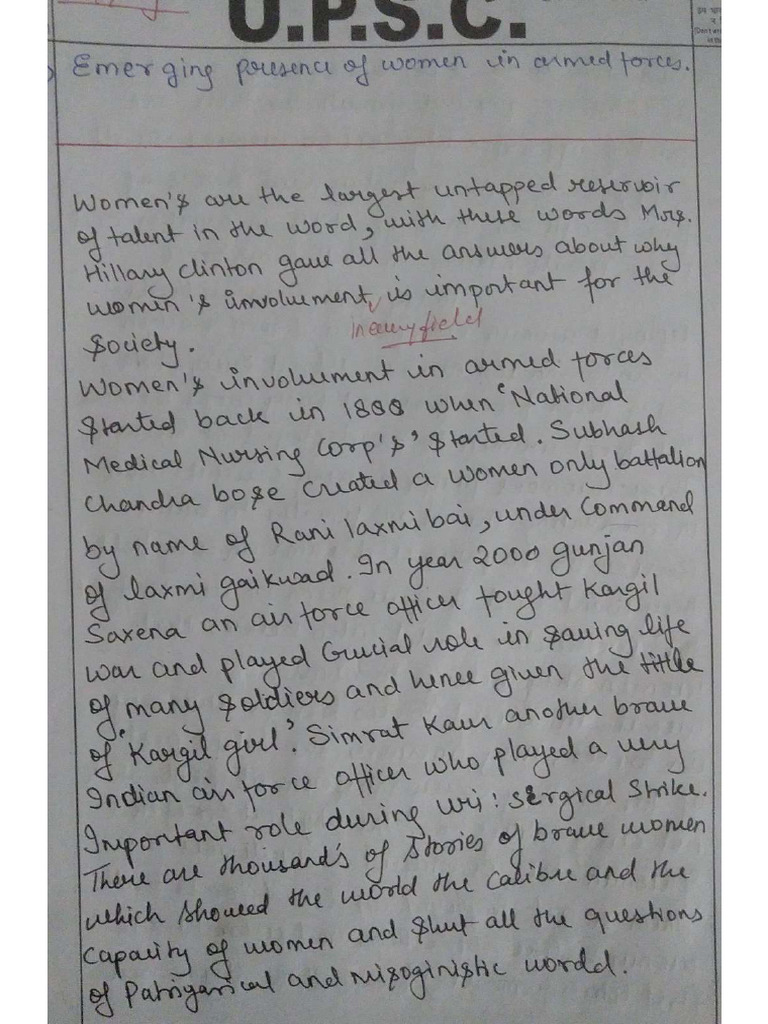 U.P.S.C.
Emerging presence of women in armed forces.
Women's are the largest untapped reservoir
of talent in the word, with these words Mrs.
Hillary Clinton gave all the answers about why
women's involvement is important for the
in every field
society.
Women's involvement in armed forces
started back in 1888 when 'National
Medical Nursing Corp's' started. Subhash
Chandra bose created a women only battalion
by name of Rani laxmi bai, under Command
of laxmi gaikwad. In year 2000 gunjan
Saxena an air force officer fought Kargil
war and played Crucial role in saving life
of many soldiers and hence given the tittle
of 'Kargil girl'. Simrat Kaur another brave
Indian air force officer who played a very
Important role during uri: sergical Strike.
There are thousand's of stories of brave women
which showed the world the Calibre and the
Capacity of women and shut all the questions
of Patriyarical and misoginistic world.